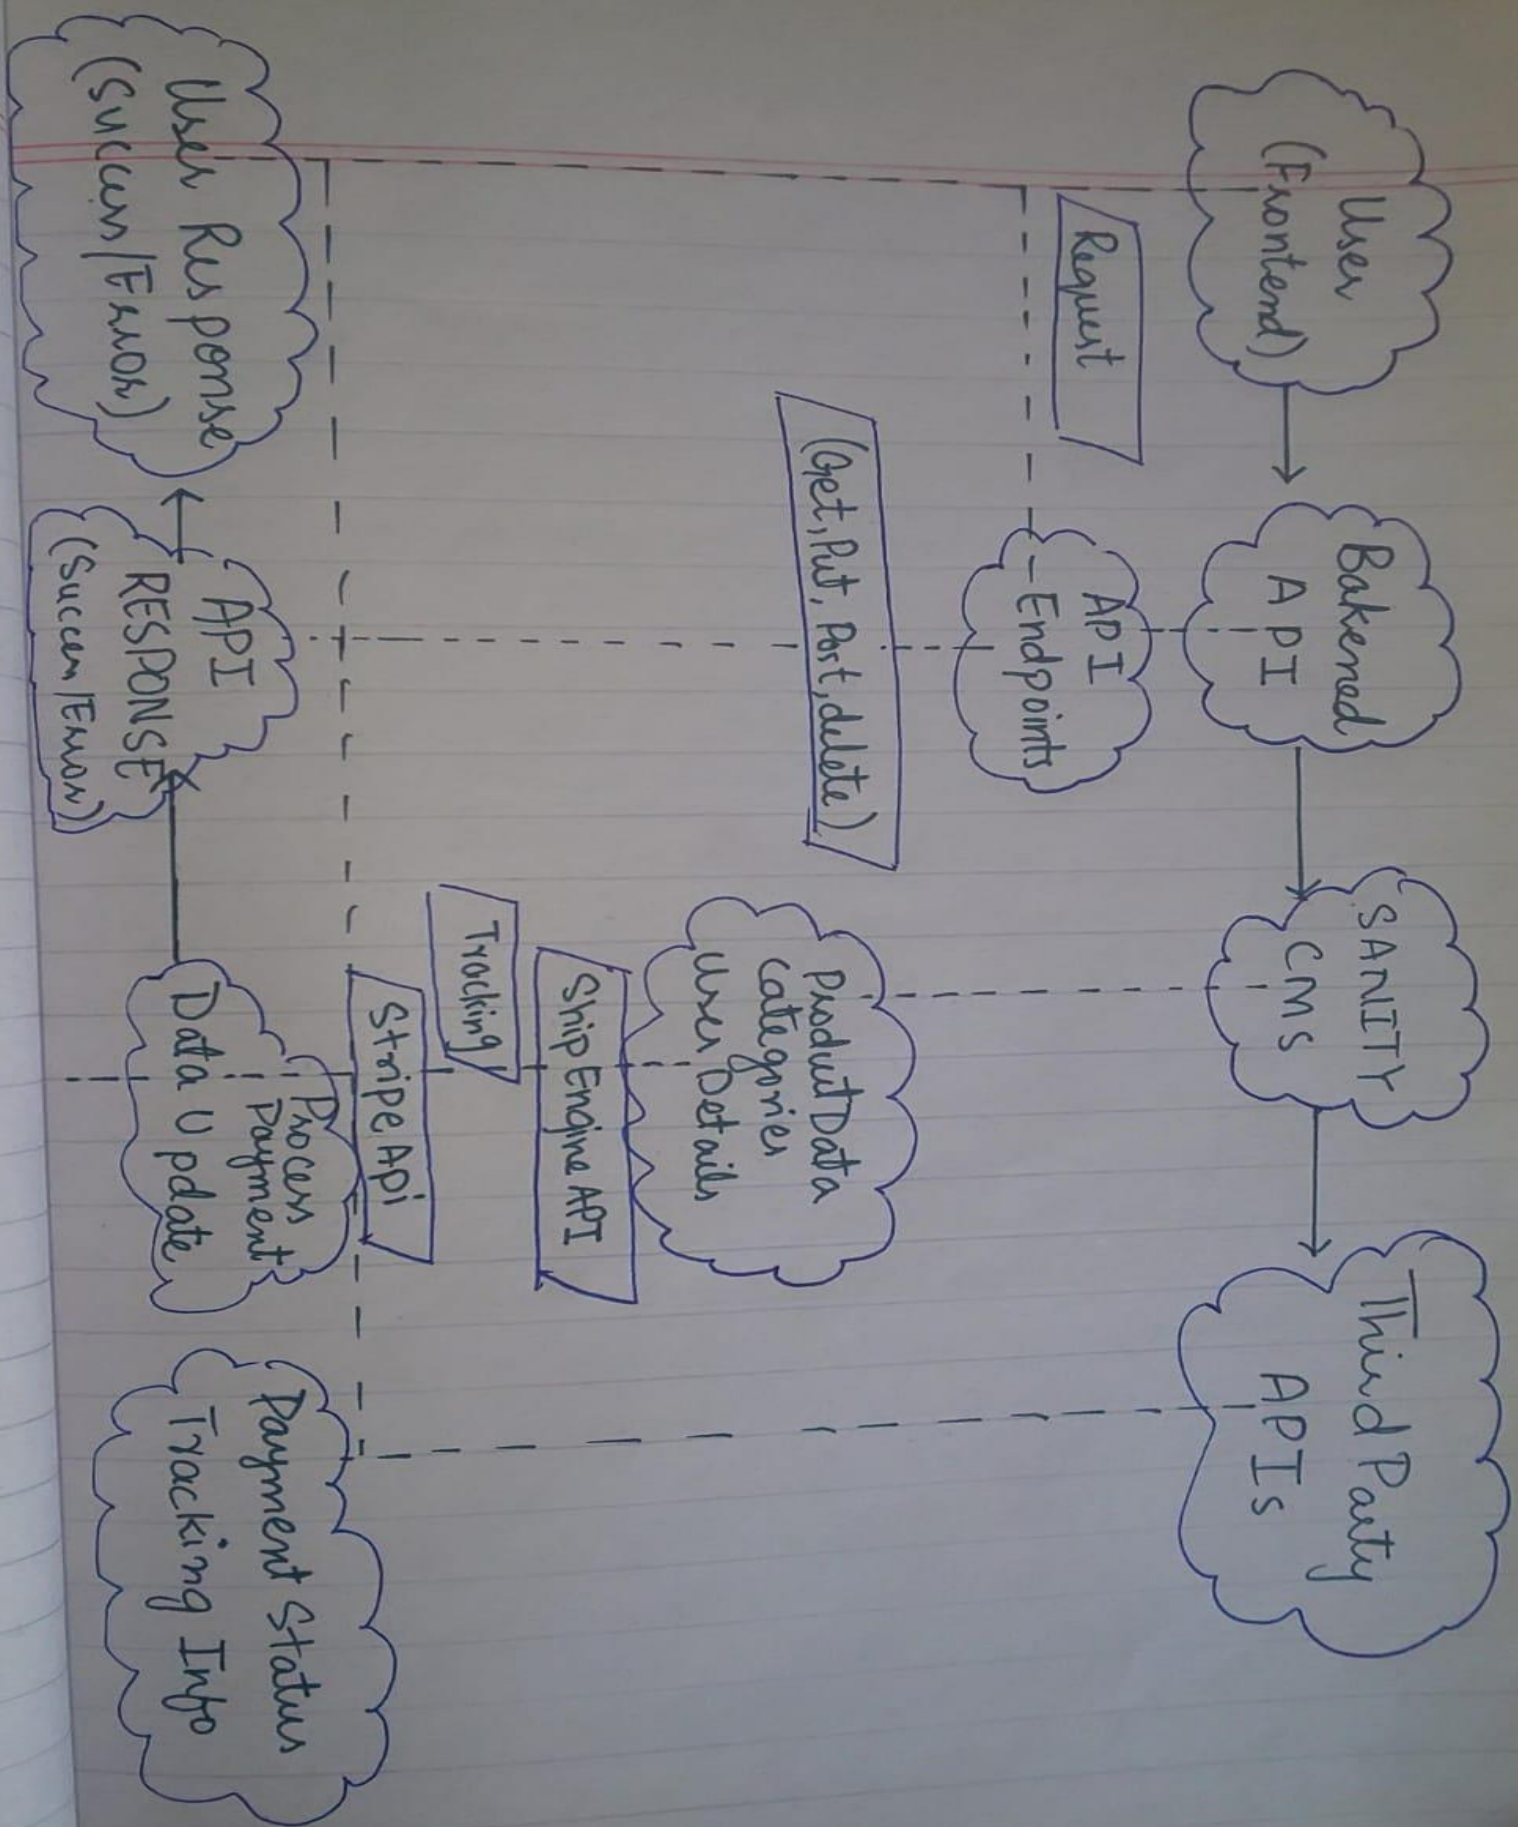 User
(Frontend)
Bakened
API
SANITY
CMS
Third Party
APIs
Request
API
Endpoints
(Get, Put, Post, delete)
Product Data
Categories
User Details
Ship Engine API
Tracking
Stripe Api
Process
Payment
Data Update
Payment Status
Tracking Info
API
RESPONSE
(Success/Error)
User Response
(Success/Error)